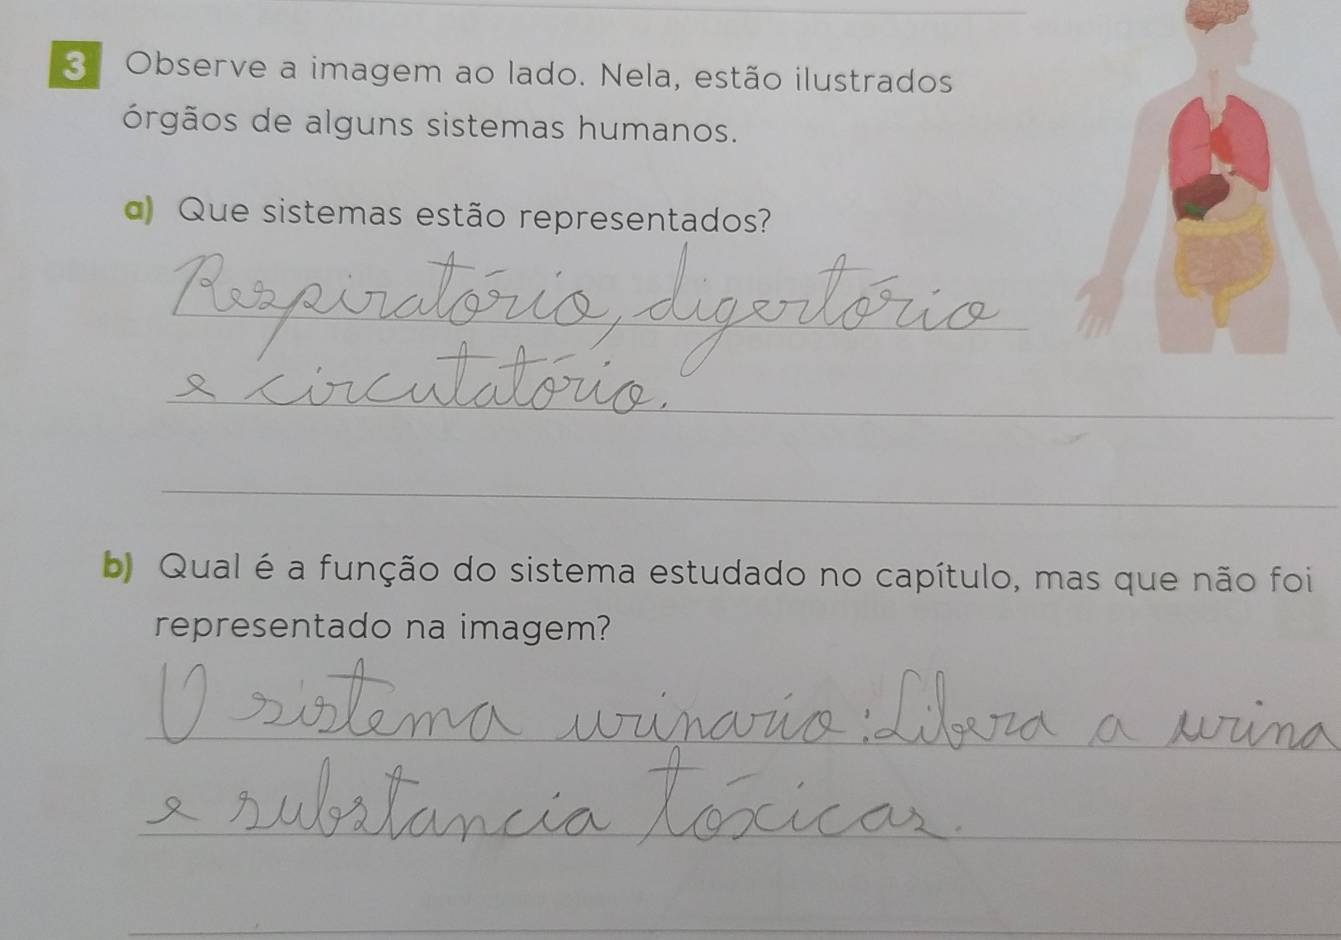 3 Observe a imagem ao lado. Nela, estão ilustrados
órgãos de alguns sistemas humanos.
a) Que sistemas estão representados?
Respiratório, digestório
e circulatório.
b) Qual é a função do sistema estudado no capítulo, mas que não foi
representado na imagem?
O sistema urinario: Libera a urina
e substancia tóxicas.